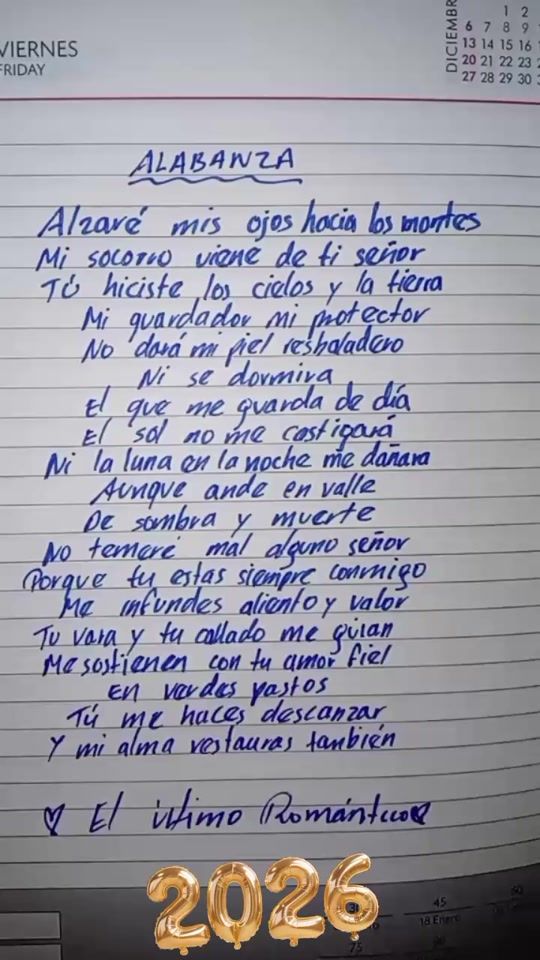 VIERNES
FRIDAY
DICIEMBR
1 2
6 7 8 9
13 14 15 16
20 21 22 23
27 28 29 30
ALABANZA
Alzaré mis ojos hacia los montes
Mi socorro viene de ti señor
Tú hiciste los cielos y la tierra
Mi guardador mi protector
No dará mi piel resbaladero
Ni se dormira
El que me guarda de día
El sol no me castigará
Ni la luna en la noche me dañara
Aunque ande en valle
De sombra y muerte
No temeré mal alguno señor
Porque tu estas siempre conmigo
Me infundes aliento y valor
Tu vara y tu callado me guian
Me sostienen con tu amor fiel
En verdes pastos
Tú me haces descanzar
Y mi alma restauras también
♡ El último Romántico♡
2026
45
18 Enero
75